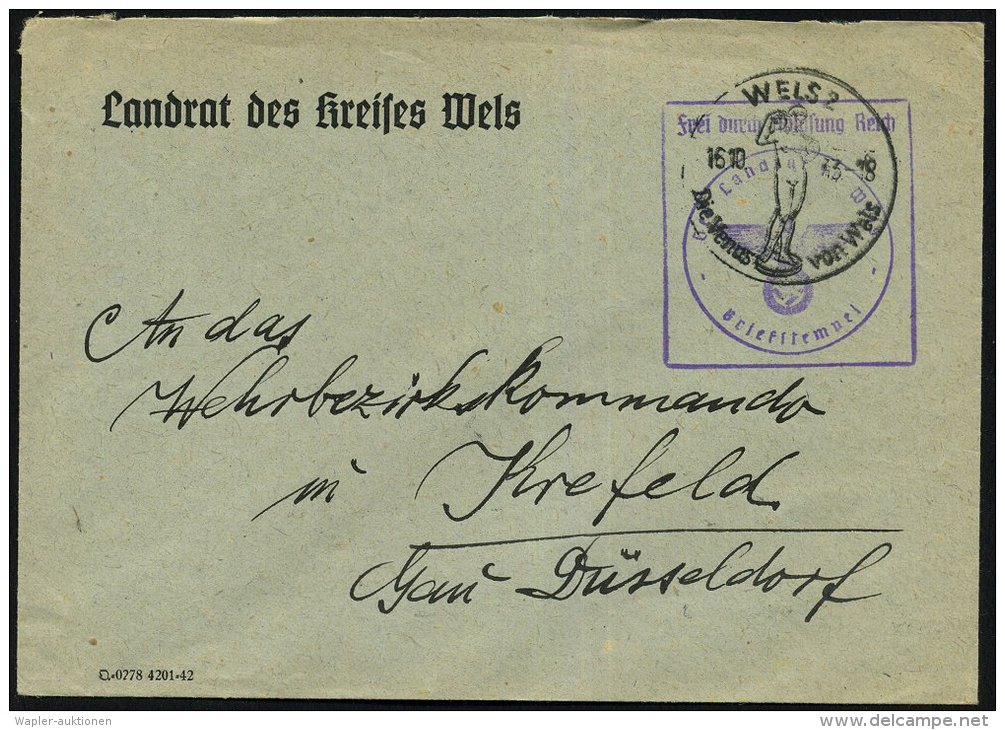 Landrat des Kreises Wels
WELS 2
Frei durch Ablösung Reich
1610 43-18
Landrat W
Die Venus von Wels
- Briefstempel -
An das
Wehrbezirkskommando
in Krefeld
Gau Düsseldorf
D.-0278 4201-42
Wapler-auktionen
delcampe.net